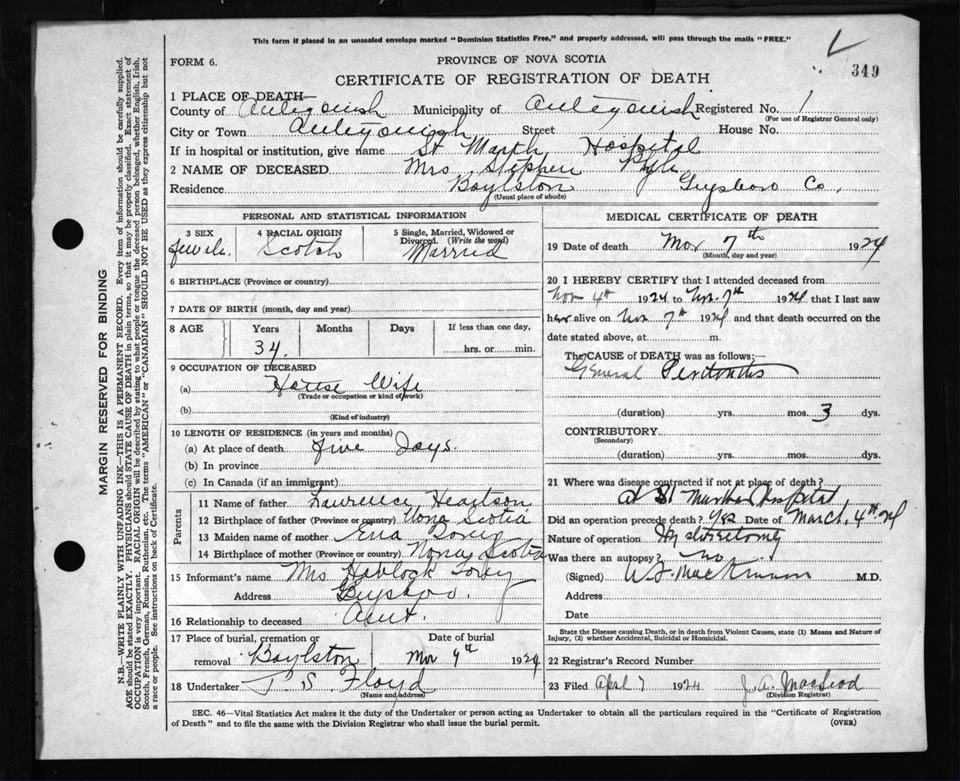 This form if placed in an unsealed envelope marked "Dominion Statistics Free," and properly addressed, will pass through the mails "FREE."
349
FORM 6.
PROVINCE OF NOVA SCOTIA
CERTIFICATE OF REGISTRATION OF DEATH
1 PLACE OF DEATH—
County of Antigonish Municipality of Antigonish Registered No. 1
(For use of Registrar General only)
City or Town Antigonish Street House No.
If in hospital or institution, give name St Marth Hospital
2 NAME OF DECEASED Mrs Stephen Pyle
Residence Boylston Guysboro Co.
(Usual place of abode)
PERSONAL AND STATISTICAL INFORMATION
3 SEX 4 RACIAL ORIGIN 5 Single, Married, Widowed or Divorced. (Write the word)
Female. Scotch Married
6 BIRTHPLACE (Province or country)
7 DATE OF BIRTH (month, day and year)
8 AGE Years Months Days If less than one day,
34. hrs. or min.
9 OCCUPATION OF DECEASED
(a) House Wife
(Trade or occupation or kind of work)
(b)
(Kind of industry)
10 LENGTH OF RESIDENCE (in years and months)
(a) At place of death Five Days.
(b) In province
(c) In Canada (if an immigrant)
Parents
11 Name of father Lawrence
12 Birthplace of father (Province or country) Nova Scotia
13 Maiden name of mother
14 Birthplace of mother (Province or country) Nova Scotia
15 Informant's name Mrs Havlock Torey
Address Guysboro.
16 Relationship to deceased Aunt.
17 Place of burial, cremation or removal Boylston
Date of burial
Mar 9th 1924
18 Undertaker P. S. Floyd
(Name and address)
MEDICAL CERTIFICATE OF DEATH
19 Date of death Mar 7th 1924
(Month, day and year)
20 I HEREBY CERTIFY that I attended deceased from
Mar 4th 1924 to Mar 7th 1924 that I last saw
her alive on Mar 7th 1924 and that death occurred on the
date stated above, at m.
The CAUSE of DEATH was as follows:—
General Peritonitis
(duration) yrs. mos. 3 dys.
CONTRIBUTORY
(Secondary)
(duration) yrs. mos. dys.
21 Where was disease contracted if not at place of death?
At St Marthas Hospital
Did an operation precede death? Yes Date of March 4th 24
Nature of operation
Was there an autopsy? no
(Signed) M.D.
Address
Date
State the Disease causing Death, or in death from Violent Causes, state (1) Means and Nature of Injury, (2) whether Accidental, Suicidal or Homicidal.
22 Registrar's Record Number
23 Filed April 7 1924 J. A. MacLeod
(Division Registrar)
SEC. 46—Vital Statistics Act makes it the duty of the Undertaker or person acting as Undertaker to obtain all the particulars required in the "Certificate of Registration
of Death" and to file the same with the Division Registrar who shall issue the burial permit.
(OVER)
MARGIN RESERVED FOR BINDING
N.B.—WRITE PLAINLY WITH UNFADING INK—THIS IS A PERMANENT RECORD. Every item of information should be carefully supplied.
AGE should be stated EXACTLY. PHYSICIANS should STATE CAUSE OF DEATH in plain terms, so that it may be properly classified. Exact statement of
OCCUPATION is very important. RACIAL ORIGIN will be described by stating to what people or tongue the deceased person belonged, whether English, Irish,
Scotch, French, German, Russian, Ruthenian, etc. The terms "AMERICAN" or "CANADIAN" SHOULD NOT BE USED as they express citizenship but not
a race or people. See instructions on back of Certificate.